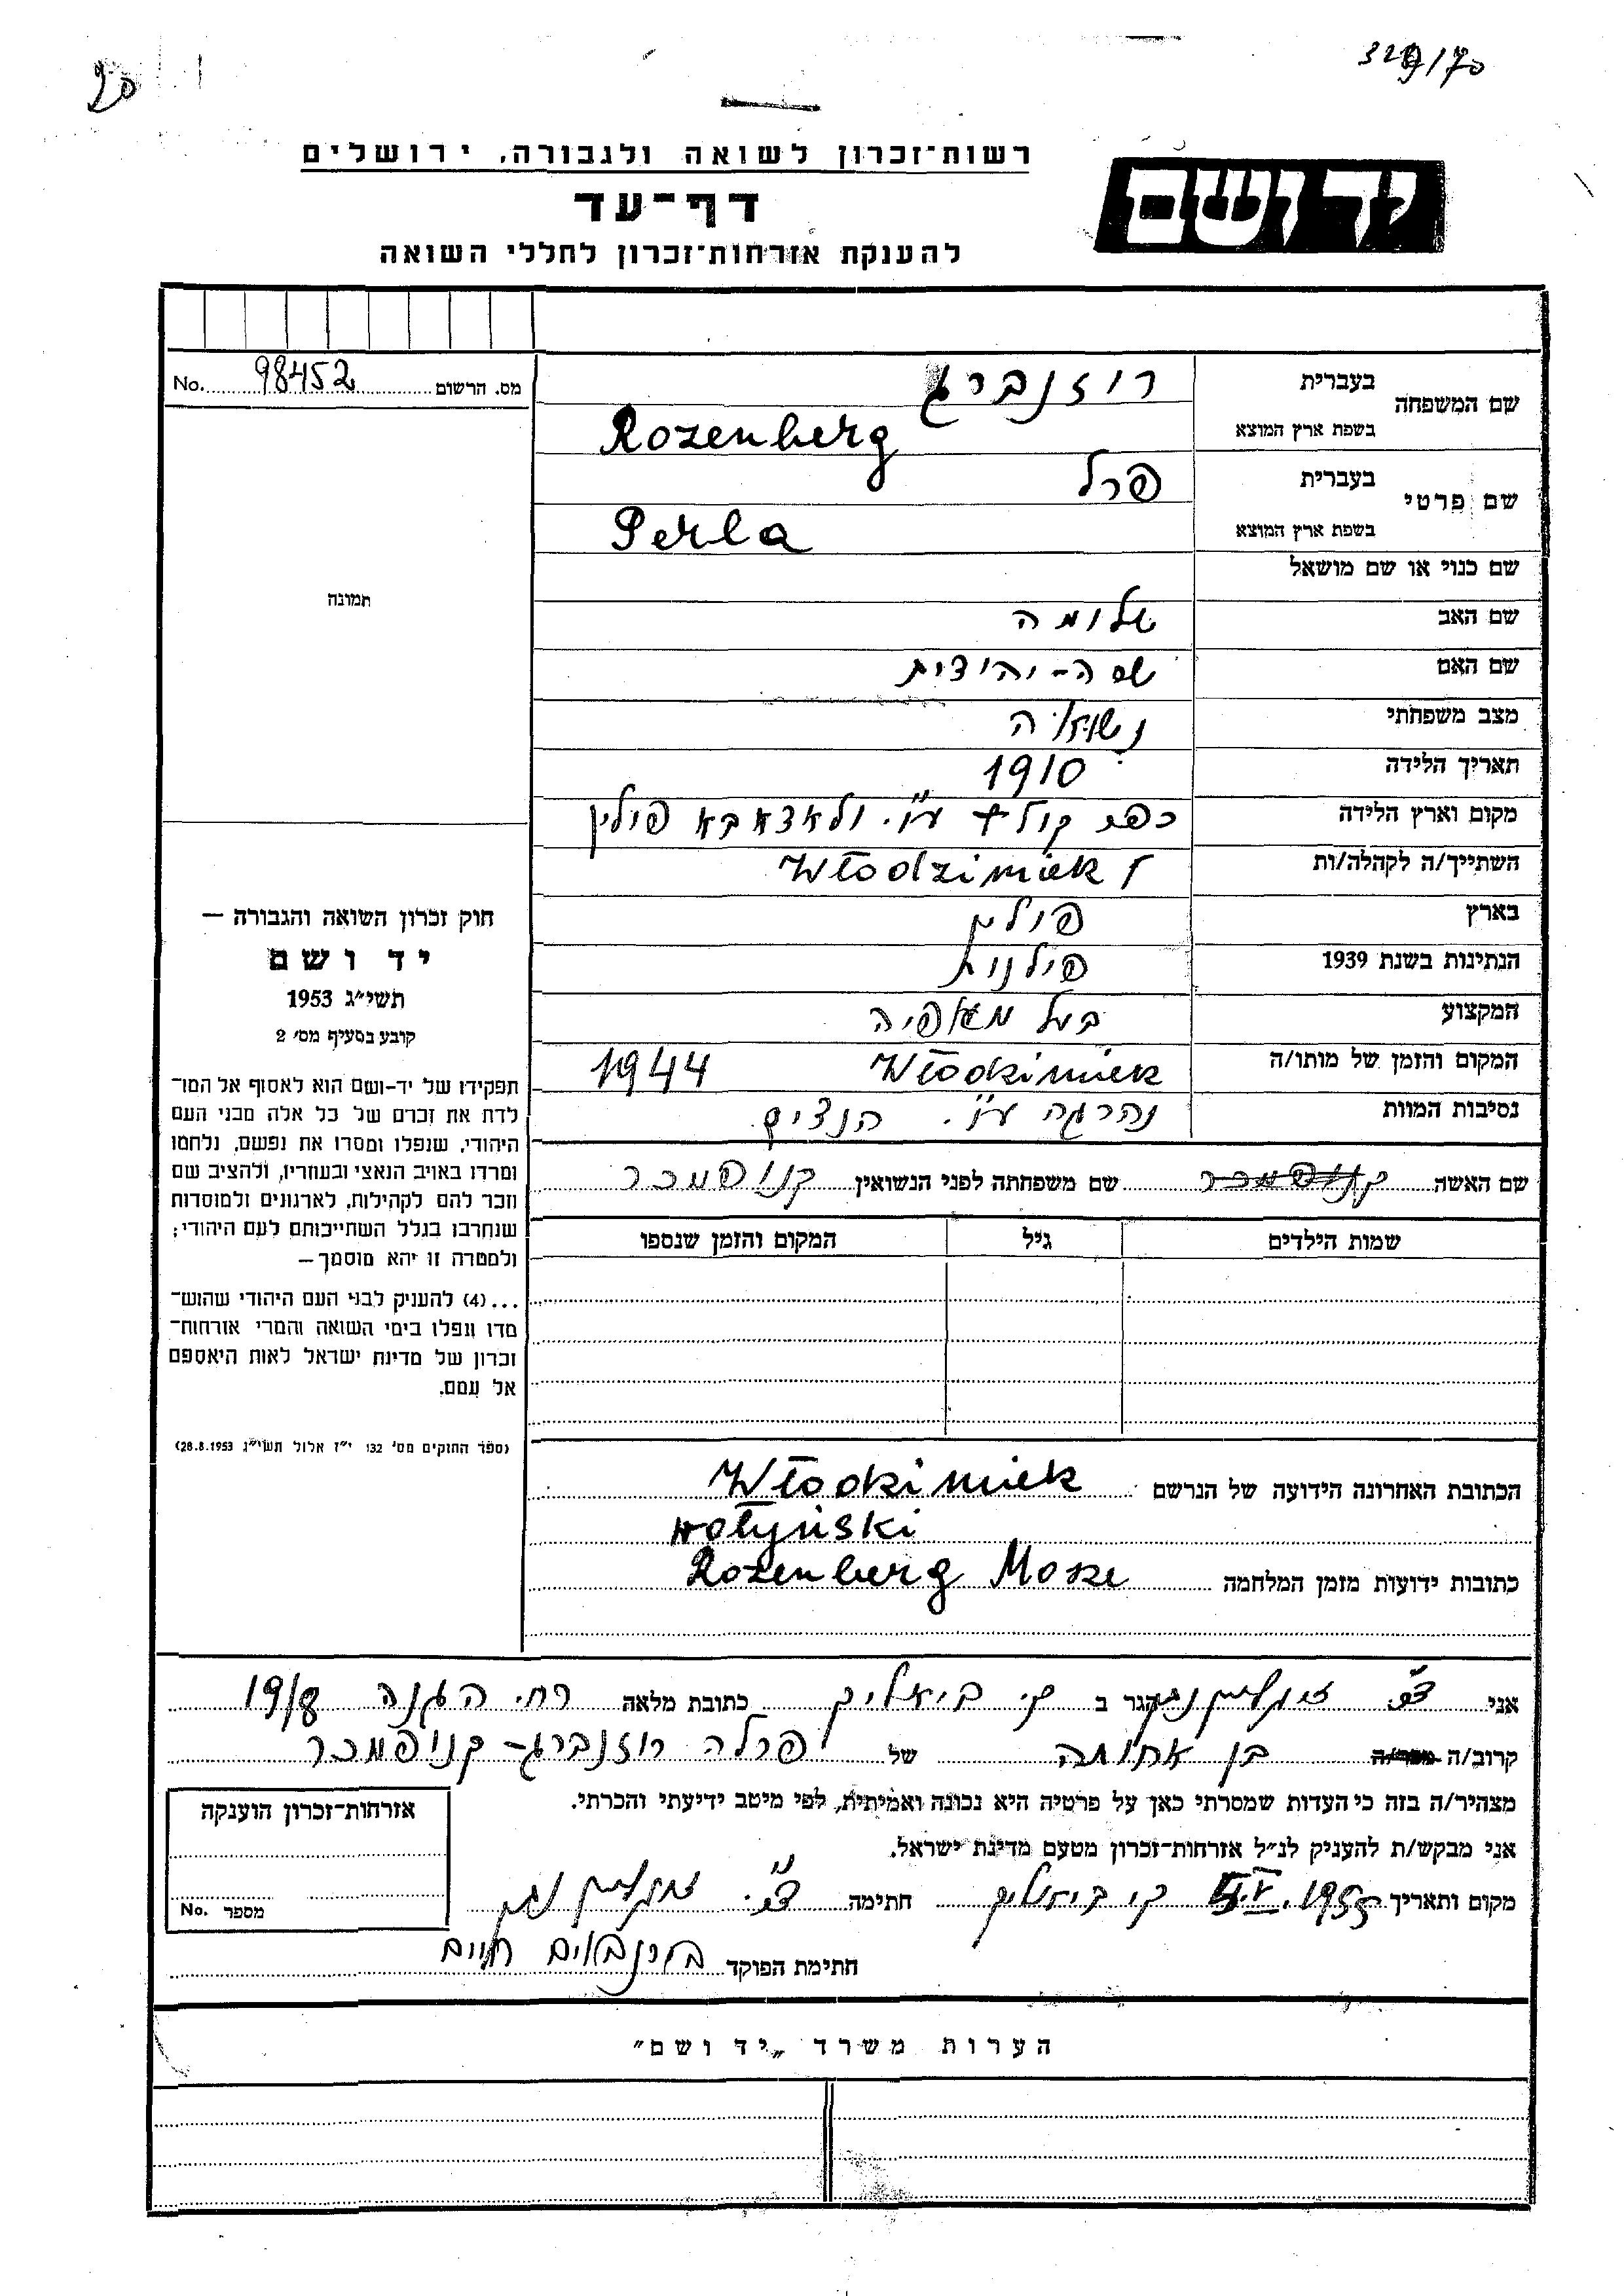 329/70
90
רשות־זכרון לשואה ולגבורה, ירושלים
יד ושם
דף־עד
להענקת אזרחות־זכרון לחללי השואה
מס. הרשום 98452 No.
תמונה
שם המשפחה בעברית רוזנברג
בשפת ארץ המוצא Rozenberg
שם פרטי בעברית פרל
בשפת ארץ המוצא Perla
שם כנוי או שם מושאל
שם האב שלומה
שם האם שסה-יהודית
מצב משפחתי נשואה
תאריך הלידה 1910
מקום וארץ הלידה כפר פולין
השתייך/ה לקהלה/ות Włodzimiek
בארץ פולין
הנתינות בשנת 1939 פולנית
המקצוע בעל מאפיה
המקום והזמן של מותו/ה Włodzimiek 1944
נסיבות המוות נהרגה ע״י. הנצים
שם האשה שם משפחתה לפני הנשואין קנופמכר
שמות הילדים גיל המקום והזמן שנספו
הכתובת האחרונה הידועה של הנרשם Włodzimiek
wołyński
כתובות ידועות מזמן המלחמה Rozenberg Mosze
חוק זכרון השואה והגבורה —
יד ושם
תשי״ג 1953
קובע בסעיף מס׳ 2
תפקידו של יד-ושם הוא לאסוף אל המו־
לדת את זכרם של כל אלה מבני העם
היהודי, שנפלו ומסרו את נפשם, נלחמו
ומרדו באויב הנאצי ובעוזריו, ולהציב שם
וזכר להם לקהילות, לארגונים ולמוסדות
שנחרבו בגלל השתייכותם לעם היהודי;
ולמטרה זו יהא מוסמך —
...(4) להעניק לבני העם היהודי שהוש־
מדו ונפלו בימי השואה והמרי אזרחות־
זכרון של מדינת ישראל לאות היאספם
אל עמם.
(ספר החוקים מס׳ 132, י״ז אלול תשי״ג 28.8.1953)
אני הגר ב ק. ביאליק כתובת מלאה רח. הגנה 19/8
קרוב/ה מכר/ה בן אחותה של פרלה רוזנברג-קנופמכר
מצהיר/ה בזה כי העדות שמסרתי כאן על פרטיה היא נכונה ואמיתית, לפי מיטב ידיעתי והכרתי.
אני מבקש/ת להעניק לנ״ל אזרחות־זכרון מטעם מדינת ישראל.
מקום ותאריך ק. ביאליק 1955 חתימה
חתימת הפוקד חיים
אזרחות־זכרון הוענקה
מספר No.
הערות משרד „יד ושם״